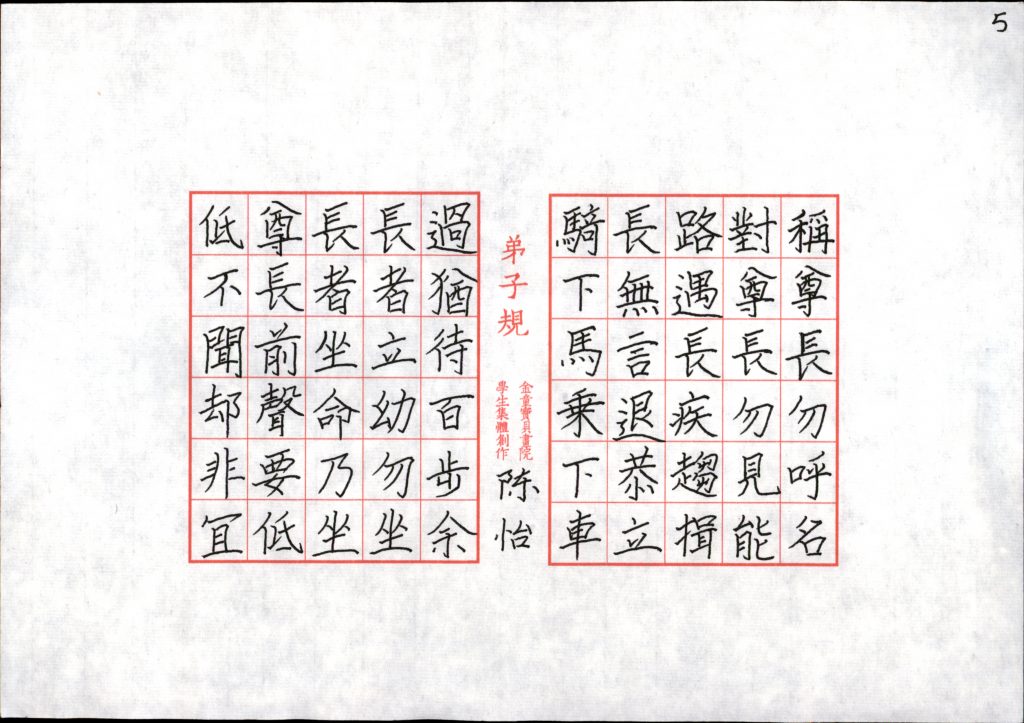 5
稱尊長勿呼名
對尊長勿見能
路遇長疾趨揖
長無言退恭立
騎下馬乘下車
弟子規
金童寶貝畫院
學生集體創作
陈怡
過猶待百步余
長者立幼勿坐
長者坐命乃坐
尊長前聲要低
低不聞却非宜